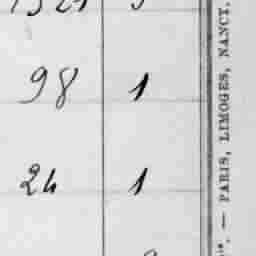 98 1
24 1
is. — PARIS, LIMOGES, NANCY,